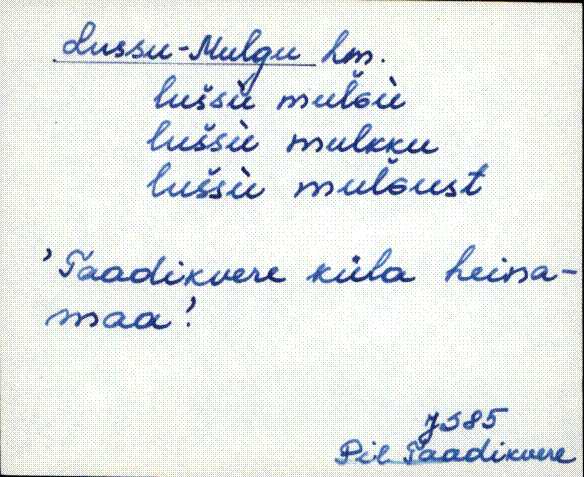 Lussu-Mulgu hm.
luššù mulGù
luššù mulkku
luššù mulGust
'Taadikvere küla heina-
maa'
JS85
Pil Taadikvere